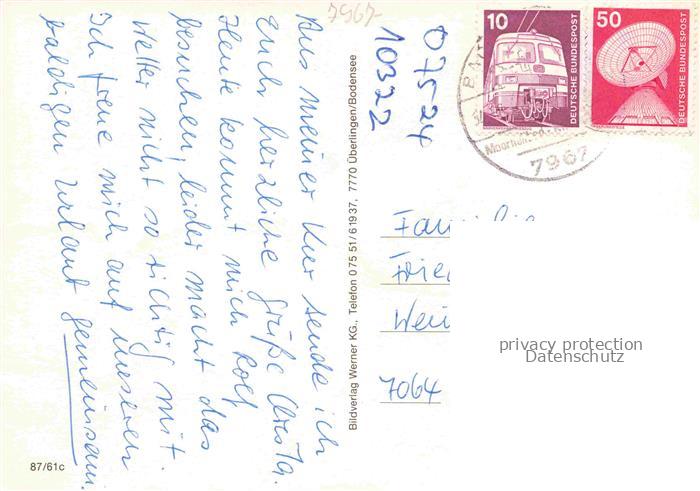 7967-
Aus meiner Kur sende ich
Euch herzliche Grüße Christa.
Heute kommt mich Rolf
besuchen, leider macht das
Wetter nicht so richtig mit.
Ich freue mich auf unseren
baldigen Urlaub gemeinsam.
87/61c
Bildverlag Werner KG., Telefon 0 75 51/6 19 37, 7770 Überlingen/Bodensee
07524
10322
10
DEUTSCHE BUNDESPOST
50
DEUTSCHE BUNDESPOST
7967
Fam
7064
privacy protection
Datenschutz